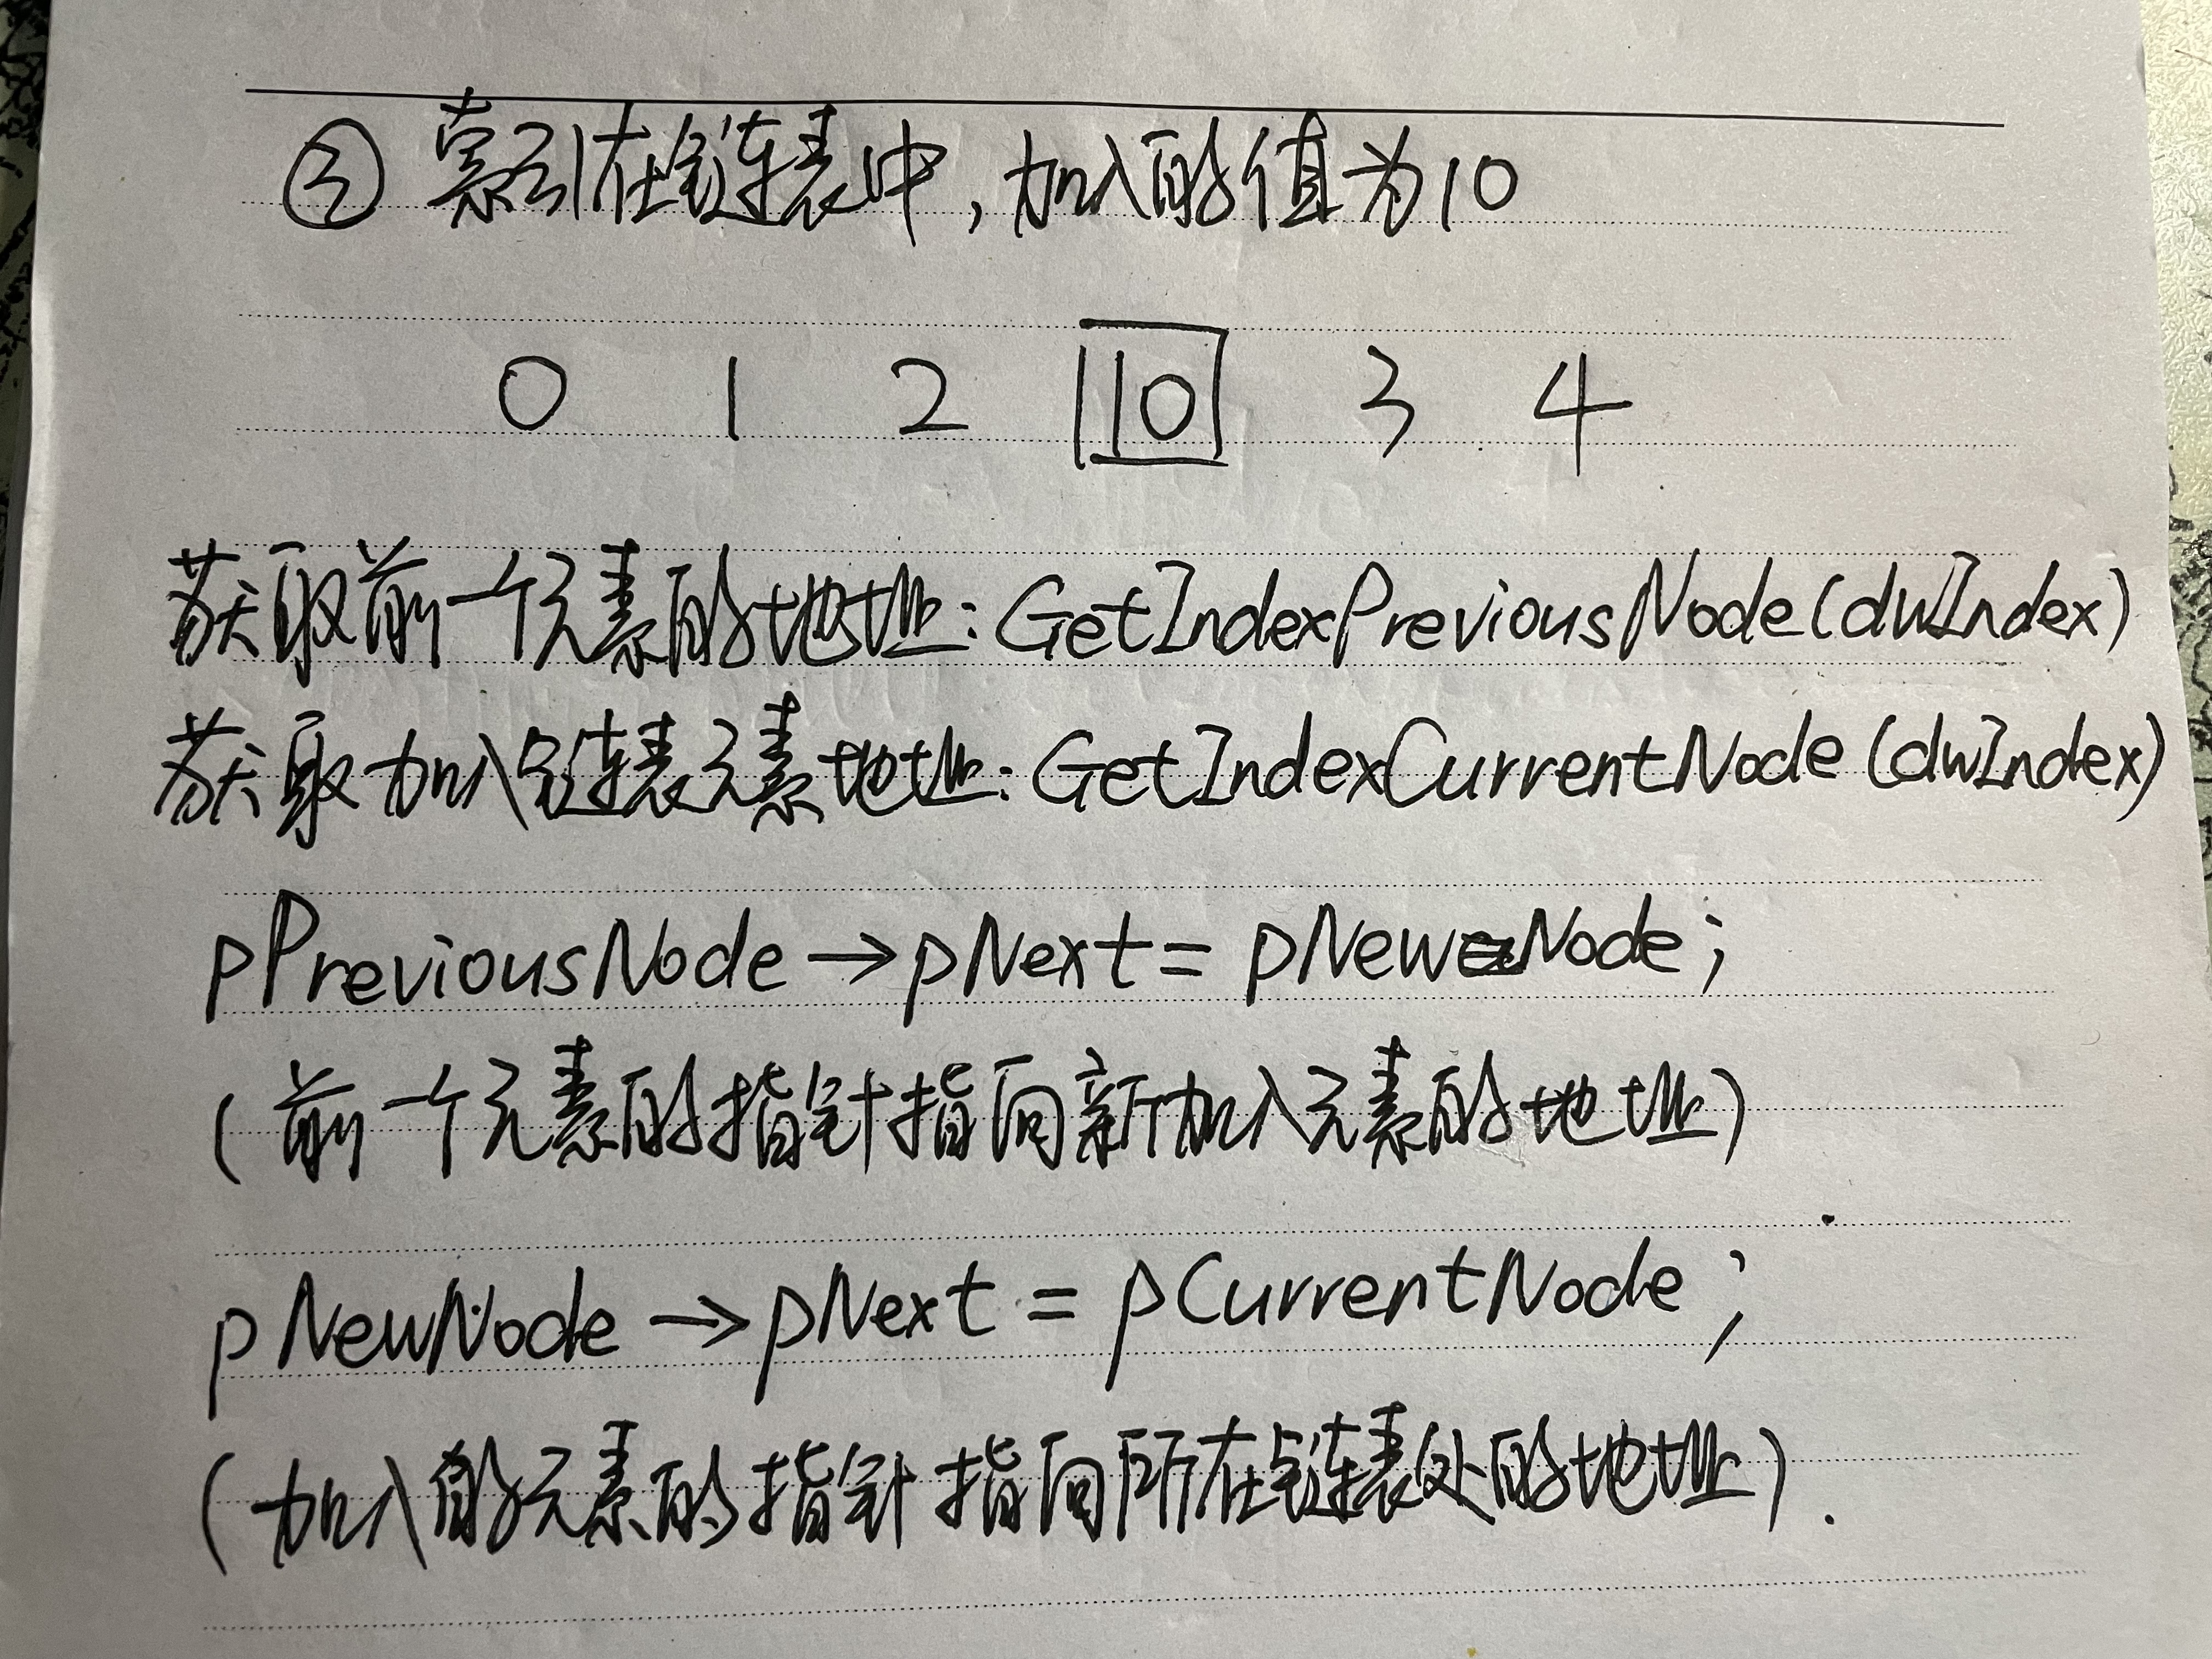 ③ 索引在链表中,加入的值为10
0 1 2 10 3 4
获取前一个元素的地址:GetIndexPreviousNode(dwIndex)
获取加入链表元素地址:GetIndexCurrentNode(dwIndex)
pPreviousNode→pNext=pNewNode;
(前一个元素的指针指向新加入元素的地址)
pNewNode→pNext=pCurrentNode;
(加入的元素的指针指向所在链表处的地址).